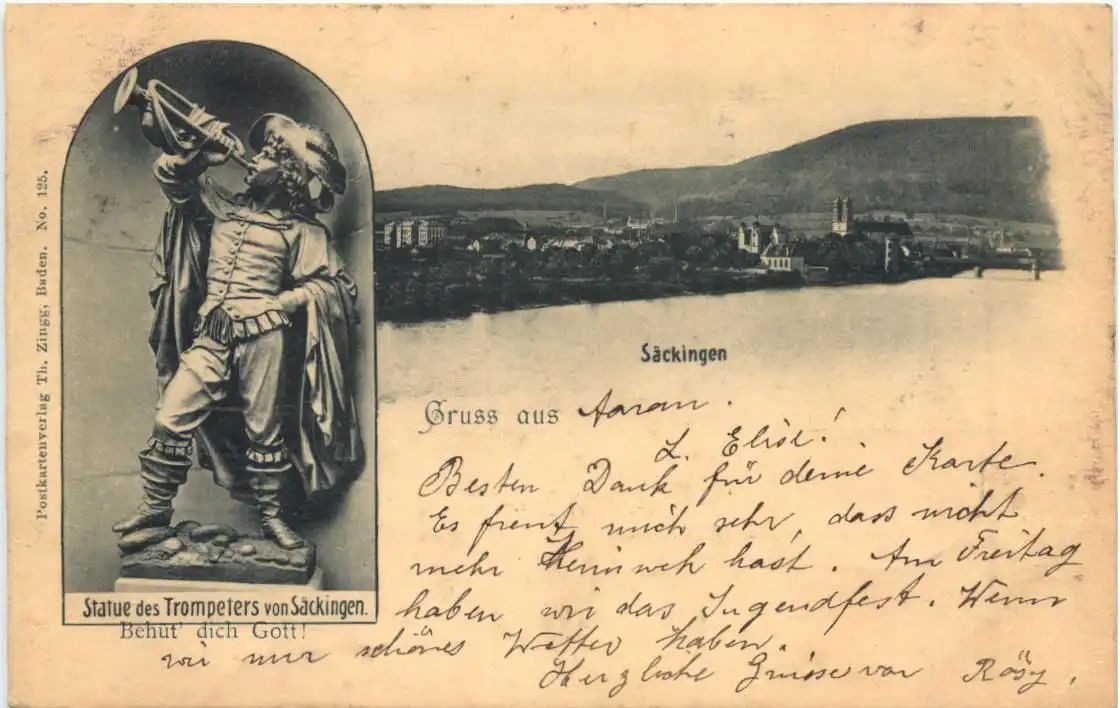 Postkartenverlag Th. Zingg, Baden. No. 125.
Statue des Trompeters von Säckingen.
Behüt' dich Gott!
Säckingen
Gruss aus Aarau.
L. Elise!
Besten Dank für deine Karte.
Es freut mich sehr, dass nicht
mehr Heimweh hast. Am Freitag
haben wir das Jugendfest. Wenn
wir nur schönes Wetter haben.
Herzliche Grüsse von Rösy.